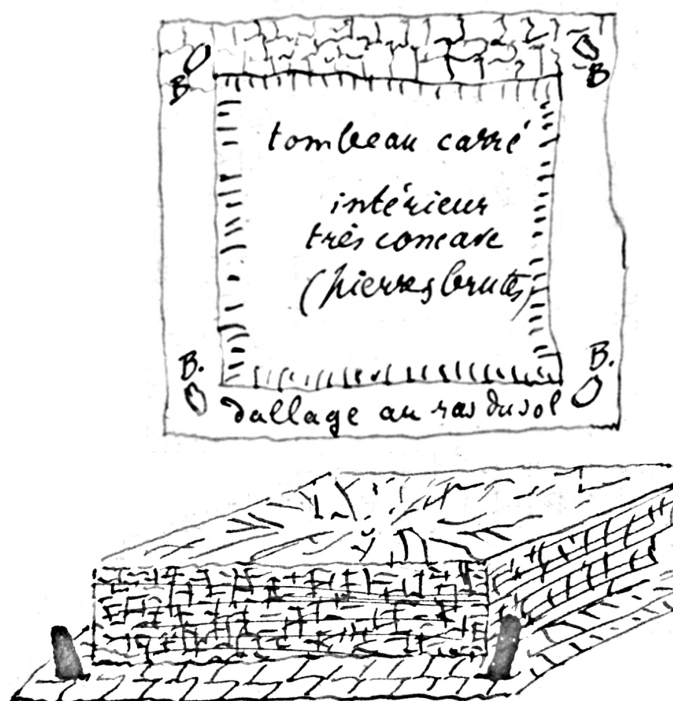 B. B.
tombeau carré
intérieur
très concave
(pierres brutes)
B. B.
dallage au ras du sol